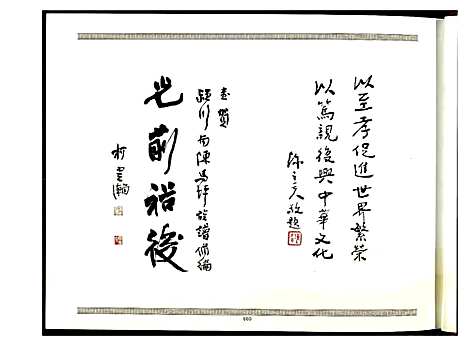 以至孝促進世界繁榮
以篤親復興中華文化
敬題
恭賀
潁川南陳馬坪族譜修編
光前裕後